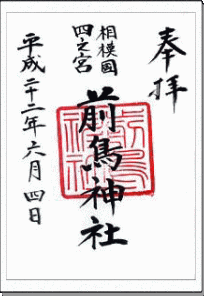 奉拝
相模國
四之宮
前鳥神社
平成二十二年六月四日